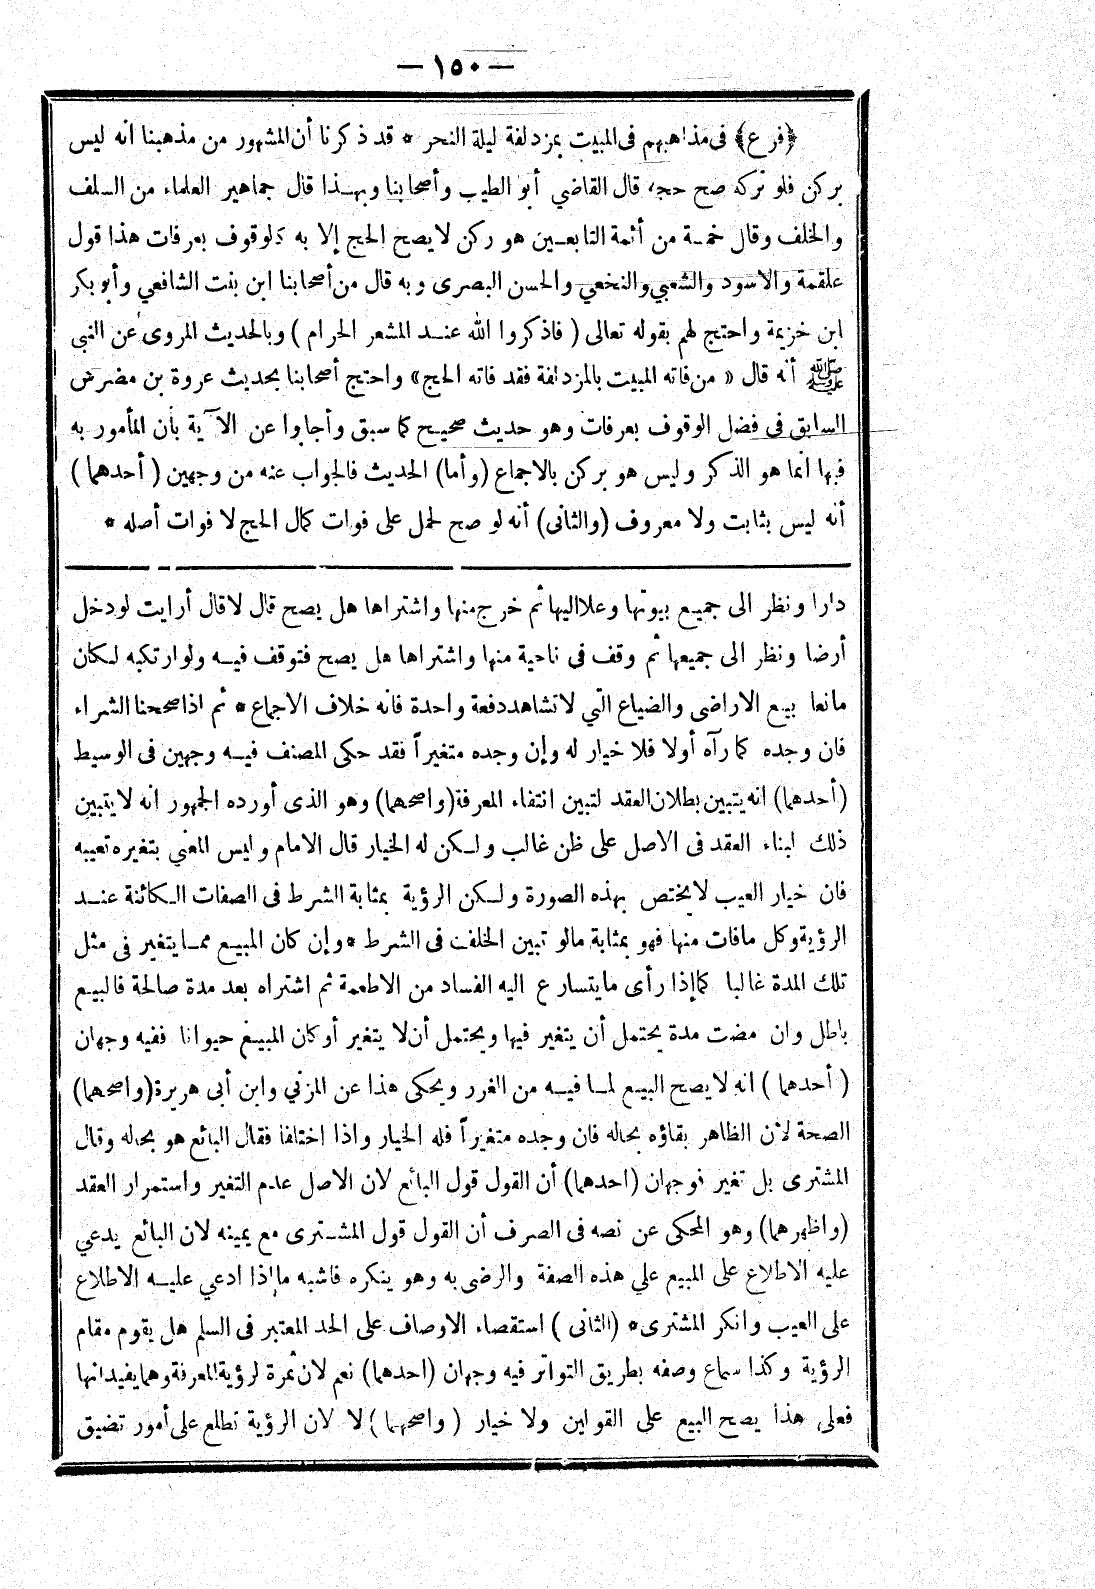 — ١٥٠ —
﴿فرع﴾ فى مذاهبهم فى المبيت بمزدلفة ليلة النحر * قد ذكرنا أن المشهور من مذهبنا انه ليس
بركن فلو تركه صح حجه قال القاضي أبو الطيب وأصحابنا وبهذا قال جماهير العلماء من السلف
والخلف وقال خمسة من أئمة التابعين هو ركن لا يصح الحج إلا به كالوقوف بعرفات هذا قول
علقمة والاسود والشعبي والنخعي والحسن البصرى وبه قال من أصحابنا ابن بنت الشافعي وأبو بكر
ابن خزيمة واحتج لهم بقوله تعالى ( فاذكروا الله عند المشعر الحرام ) وبالحديث المروى عن النبي
ﷺ أنه قال « من فاته المبيت بالمزدلفة فقد فاته الحج» واحتج أصحابنا بحديث عروة بن مضرس
السابق فى فضل الوقوف بعرفات وهو حديث صحيح كما سبق وأجابوا عن الآية بأن المأمور به
فيها انما هو الذكر وليس هو بركن بالاجماع (وأما) الحديث فالجواب عنه من وجهين ( أحدهما )
أنه ليس بثابت ولا معروف (والثانى) أنه لو صح لحمل على فوات كمال الحج لا فوات أصله *
دارا ونظر الى جميع بيوتها وعلا اليها ثم خرج منها واشتراها هل يصح قال لا قال أرايت لو دخل
أرضا ونظر الى جميعها ثم وقف فى ناحية منها واشتراها هل يصح فتوقف فيه ولو ارتكبه لكان
مانعا بيع الاراضى والضياع التي لا تشاهد دفعة واحدة فانه خلاف الاجماع * ثم اذا صححنا الشراء
فان وجده كما رآه أولا فلا خيار له وإن وجده متغيراً فقد حكى المصنف فيه وجهين فى الوسيط
(أحدهما) انه يتبين بطلان العقد لتبين انتفاء المعرفة (واصحهما) وهو الذى أورده الجمهور انه لا يتبين
ذلك لبناء العقد فى الاصل على ظن غالب ولكن له الخيار قال الامام وليس المعني بتغيره تعيبه
فان خيار العيب لا يختص بهذه الصورة ولكن الرؤية بمثابة الشرط فى الصفات الكائنة عند
الرؤية وكل ما فات منها فهو بمثابة مالو تبين الخلف فى الشرط * وإن كان المبيع مما يتغير فى مثل
تلك المدة غالبا كما إذا رأى ما يتسارع اليه الفساد من الاطعمة ثم اشتراه بعد مدة صالحة فالبيع
باطل وان مضت مدة يحتمل أن يتغير فيها ويحتمل أن لا يتغير أو كان المبيع حيوانا ففيه وجهان
( أحدهما ) انه لا يصح البيع لما فيه من الغرر ويحكى هذا عن المزني وابن أبى هريرة (واصحهما)
الصحة لأن الظاهر بقاؤه بحاله فان وجده متغيراً فله الخيار واذا اختلفا فقال البائع هو بحاله وقال
المشترى بل تغير فوجهان (احدهما) أن القول قول البائع لان الاصل عدم التغير واستمرار العقد
(واظهرهما) وهو المحكى عن نصه فى الصرف أن القول قول المشترى مع يمينه لان البائع يدعي
عليه الاطلاع على المبيع علي هذه الصفة والرضى به وهو ينكره فاشبه ما إذا ادعي عليه الاطلاع
على العيب وانكر المشترى* (الثانى ) استقصاء الاوصاف على الحد المعتبر فى السلم هل يقوم مقام
الرؤية وكذا سماع وصفه بطريق التواتر فيه وجهان (احدهما) نعم لان ثمرة لرؤية المعرفة وهما يفيدانها
فعلى هذا يصح البيع على القولين ولا خيار ( واصحهما ) لا لان الرؤية تطلع على أمور تضيق